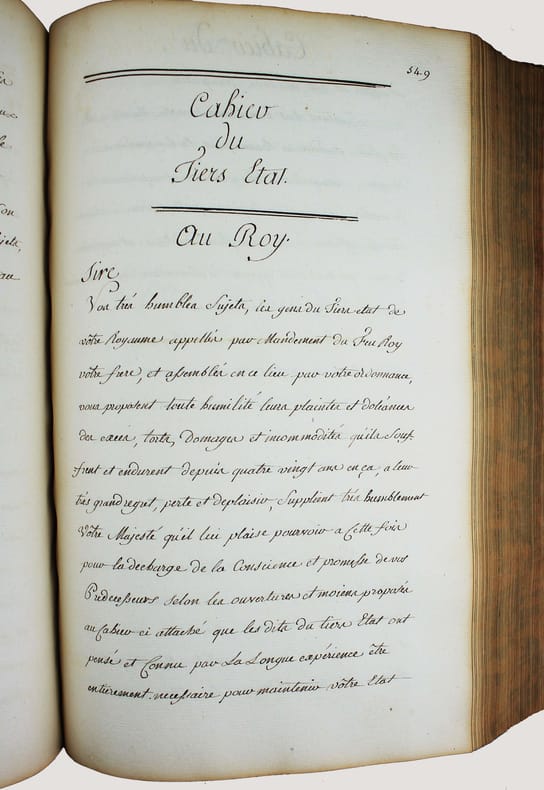 549
Cahier
du
Tiers Etat.
Au Roy.
Sire
Vos trés humbles Sujets, les gens du Tiers etat de
vôtre Royaume appellés par Mandement du Feu Roy
vôtre frere, et assemblés en ce lieu par votre ordonnance,
vous proposent toute humilité leurs plaintes et doléances
des excés, torts, domages et incommôdités qu'ils Souf-
frent et endurent depuis quatre vingt ans en ça, a leur
trés grand regret, perte et deplaisir, Supplient trés humblement
Vôtre Majesté qu'il lui plaise pourvoir a Cette fois
pour la decharge de la Conscience et promesse de vos
Predecesseurs selon les ouvertures et moiens proposés
au Cahier ci attaché que les dits du tiers Etat ont
pensé et Connu par La Longue expérience être
entierement necessaire pour maintenir vôtre Etat